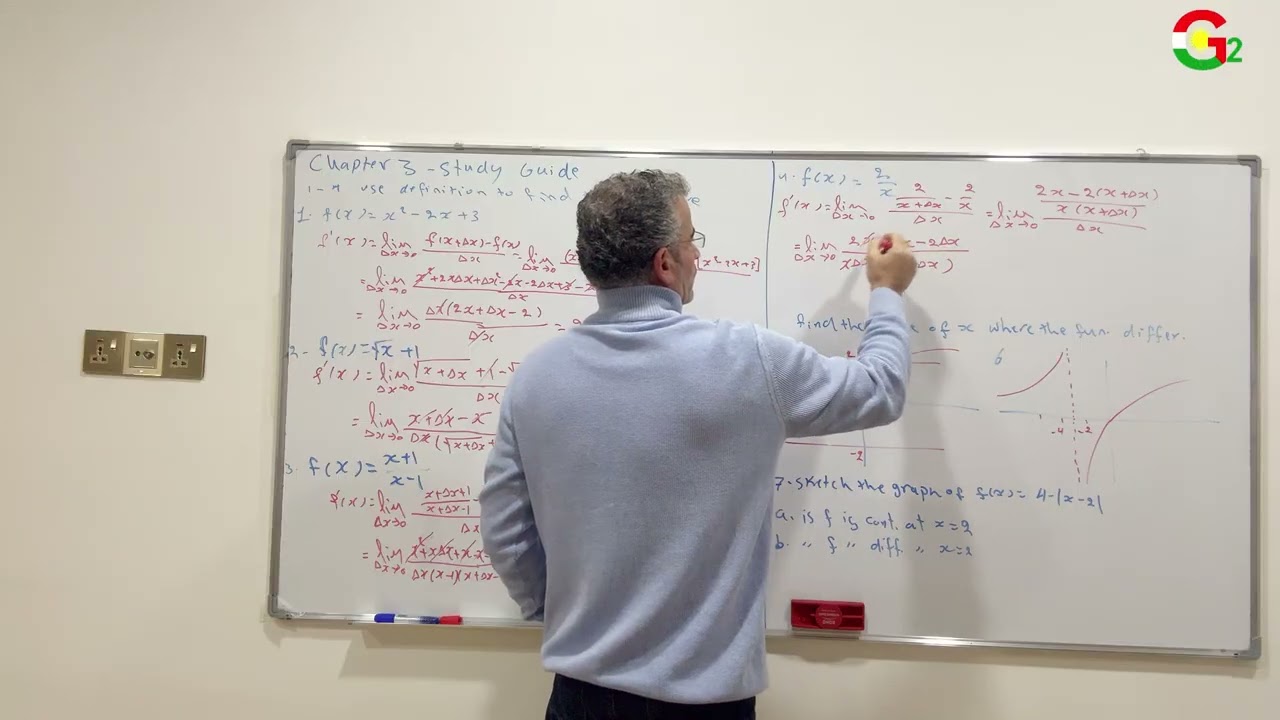 G2
Chapter 3 - Study Guide
use definition to find
1. f(x) = x² - 2x + 3
f'(x) = lim Δx→0 f(x+Δx) - f(x) / Δx = lim Δx→0
= lim Δx→0 x² + 2xΔx + Δx² - 2x - 2Δx + 3 - / Δx
= lim Δx→0 Δx(2x + Δx - 2) / Δx
2- f(x) = √x + 1
f'(x) = lim Δx→0 √x + Δx + 1 - √ / Δx
= lim Δx→0 x + Δx - x / Δx(√x + Δx +
3. f(x) = x+1 / x-1
f'(x) = lim Δx→0 x+Δx+1 / x+Δx-1
= lim Δx→0 x² + xΔx + x - x - / Δx(x-1)(x+Δx-
4. f(x) = 2/x
f'(x) = lim Δx→0 2/(x+Δx) - 2/x / Δx = lim Δx→0 2x - 2(x+Δx) / x(x+Δx) / Δx
= lim Δx→0 - 2Δx
find the of x where the fun. differ.
6
-4 -2
-2
7- sketch the graph of f(x) = 4-|x-2|
a. is f is cont. at x=2
b. " f " diff. " x=2